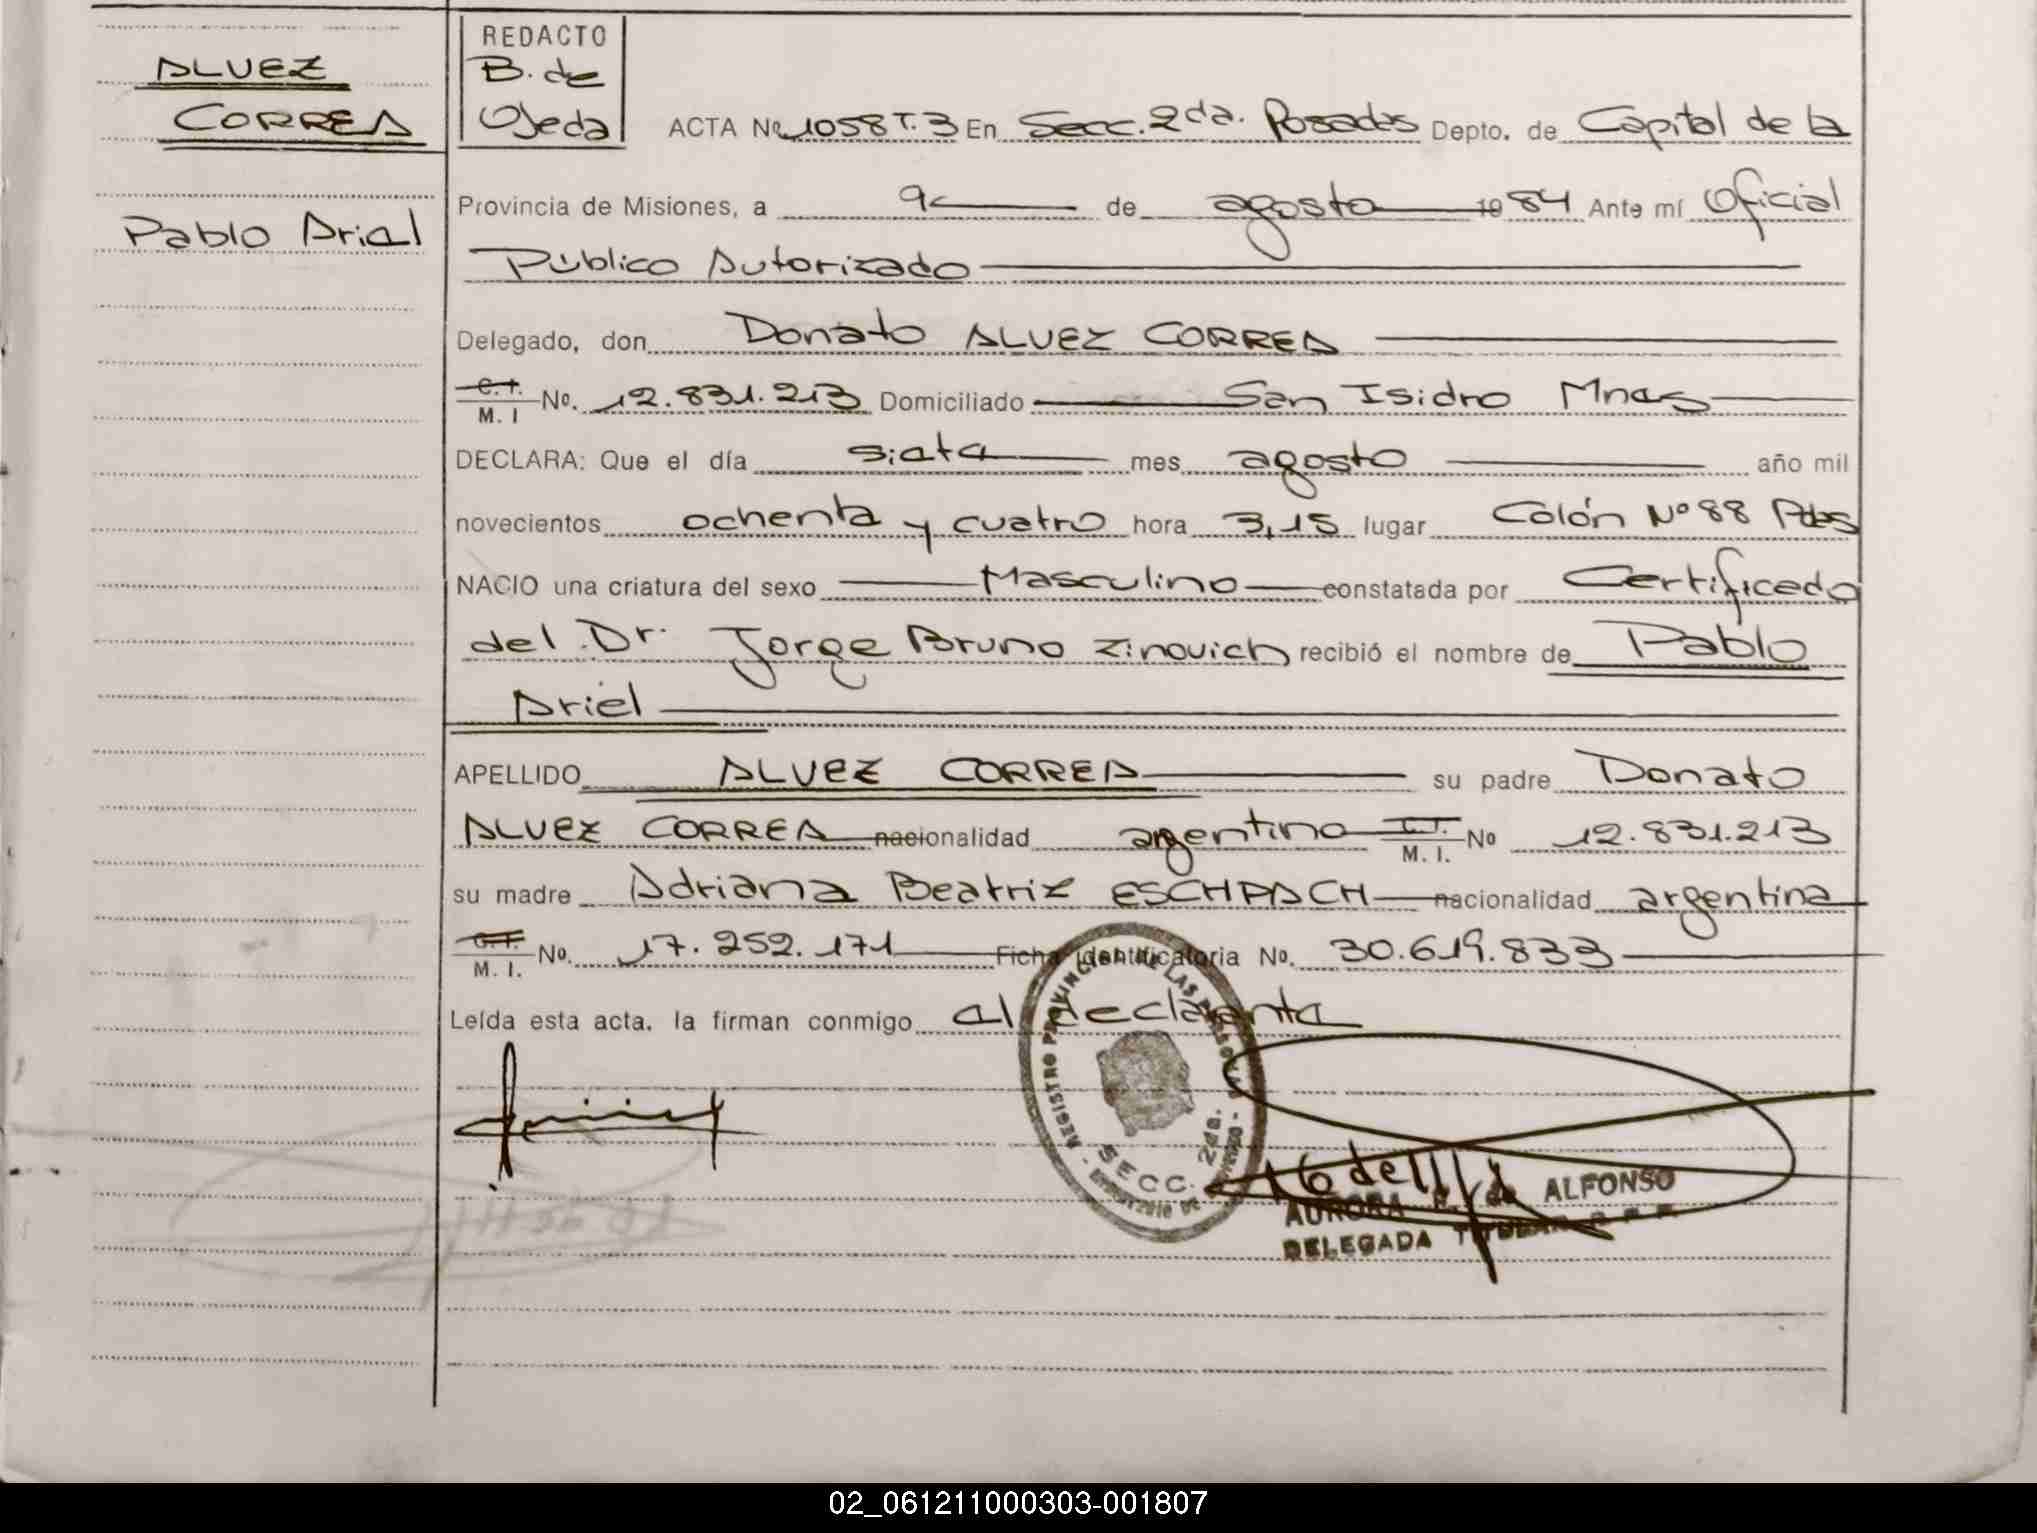 ALVEZ
CORREA
Pablo Ariel
REDACTO
B. de
Ojeda
ACTA No 1058 T.3 En Secc. 2da. Posadas Depto. de Capital de la
Provincia de Misiones, a 9 de agosto 1984 Ante mí Oficial
Público Autorizado
Delegado, don Donato ALVEZ CORREA
C.I. M. I No. 12.831.213 Domiciliado San Isidro Mnes
DECLARA: Que el día siete mes agosto año mil
novecientos ochenta y cuatro hora 3,15 lugar Colón Nº 88 Pdas
NACIO una criatura del sexo Masculino constatada por Certificado
del Dr. Jorge Bruno Zinovich recibió el nombre de Pablo
Ariel
APELLIDO ALVEZ CORREA su padre Donato
ALVEZ CORREA nacionalidad argentino C.I. M. I. No 12.831.213
su madre Adriana Beatriz ESCHPACH nacionalidad argentina
C.I. M. I. No. 17.252.171 Ficha identificatoria No. 30.619.833
Leída esta acta. la firman conmigo el declarante
REGISTRO PROVINCIAL DE LAS PERSONAS
SECC. 2da.
AURORA de ALFONSO
DELEGADA TITULAR
02_061211000303-001807